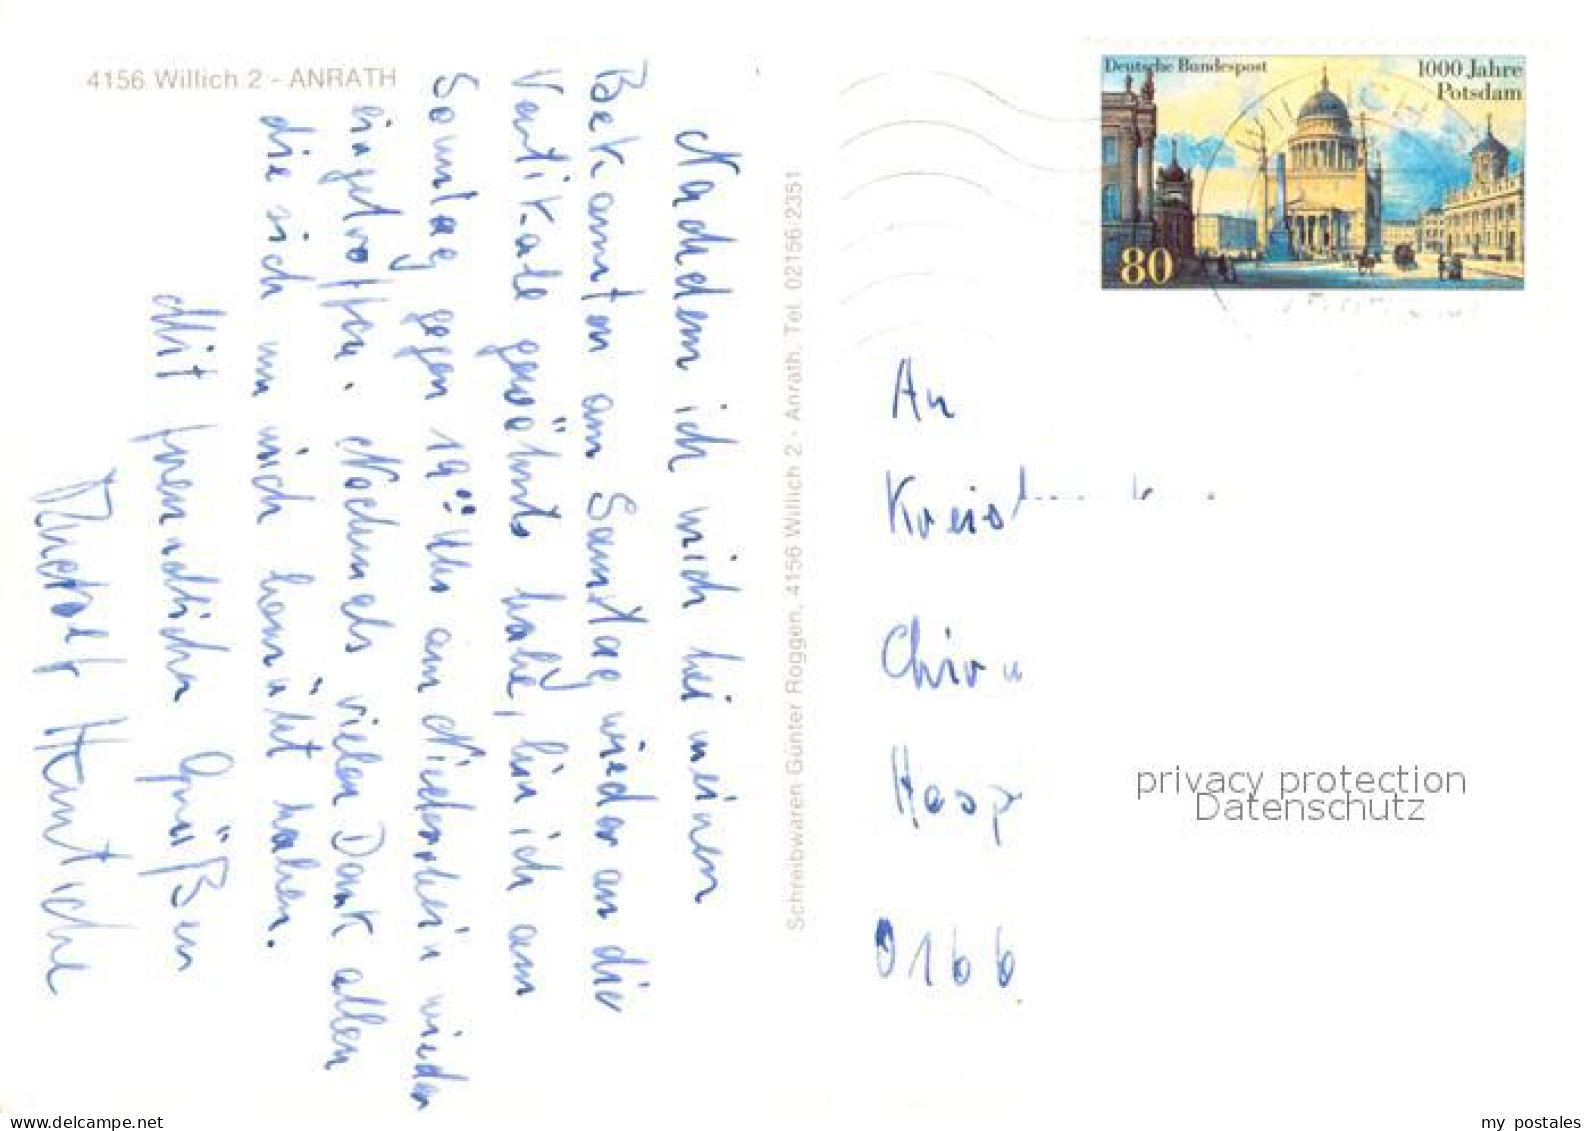 4156 Willich 2 - ANRATH
Nachdem ich mich bei meinen
Bekannten am Samstag wieder an die
Vertikale gewöhnt habe, bin ich am
Sonntag gegen 19°° Uhr am Niederrhein wieder
eingetroffen. Nochmals vielen Dank allen
die sich um mich bemüht haben.
Mit freundlichen Grüßen
Schreibwaren Günter Roggen, 4156 Willich 2 - Anrath, Tel. 02156/2351
Deutsche Bundespost
1000 Jahre
Potsdam
80
An
Kreis
Chiru
Hosp
0166
privacy protection
Datenschutz
my postales